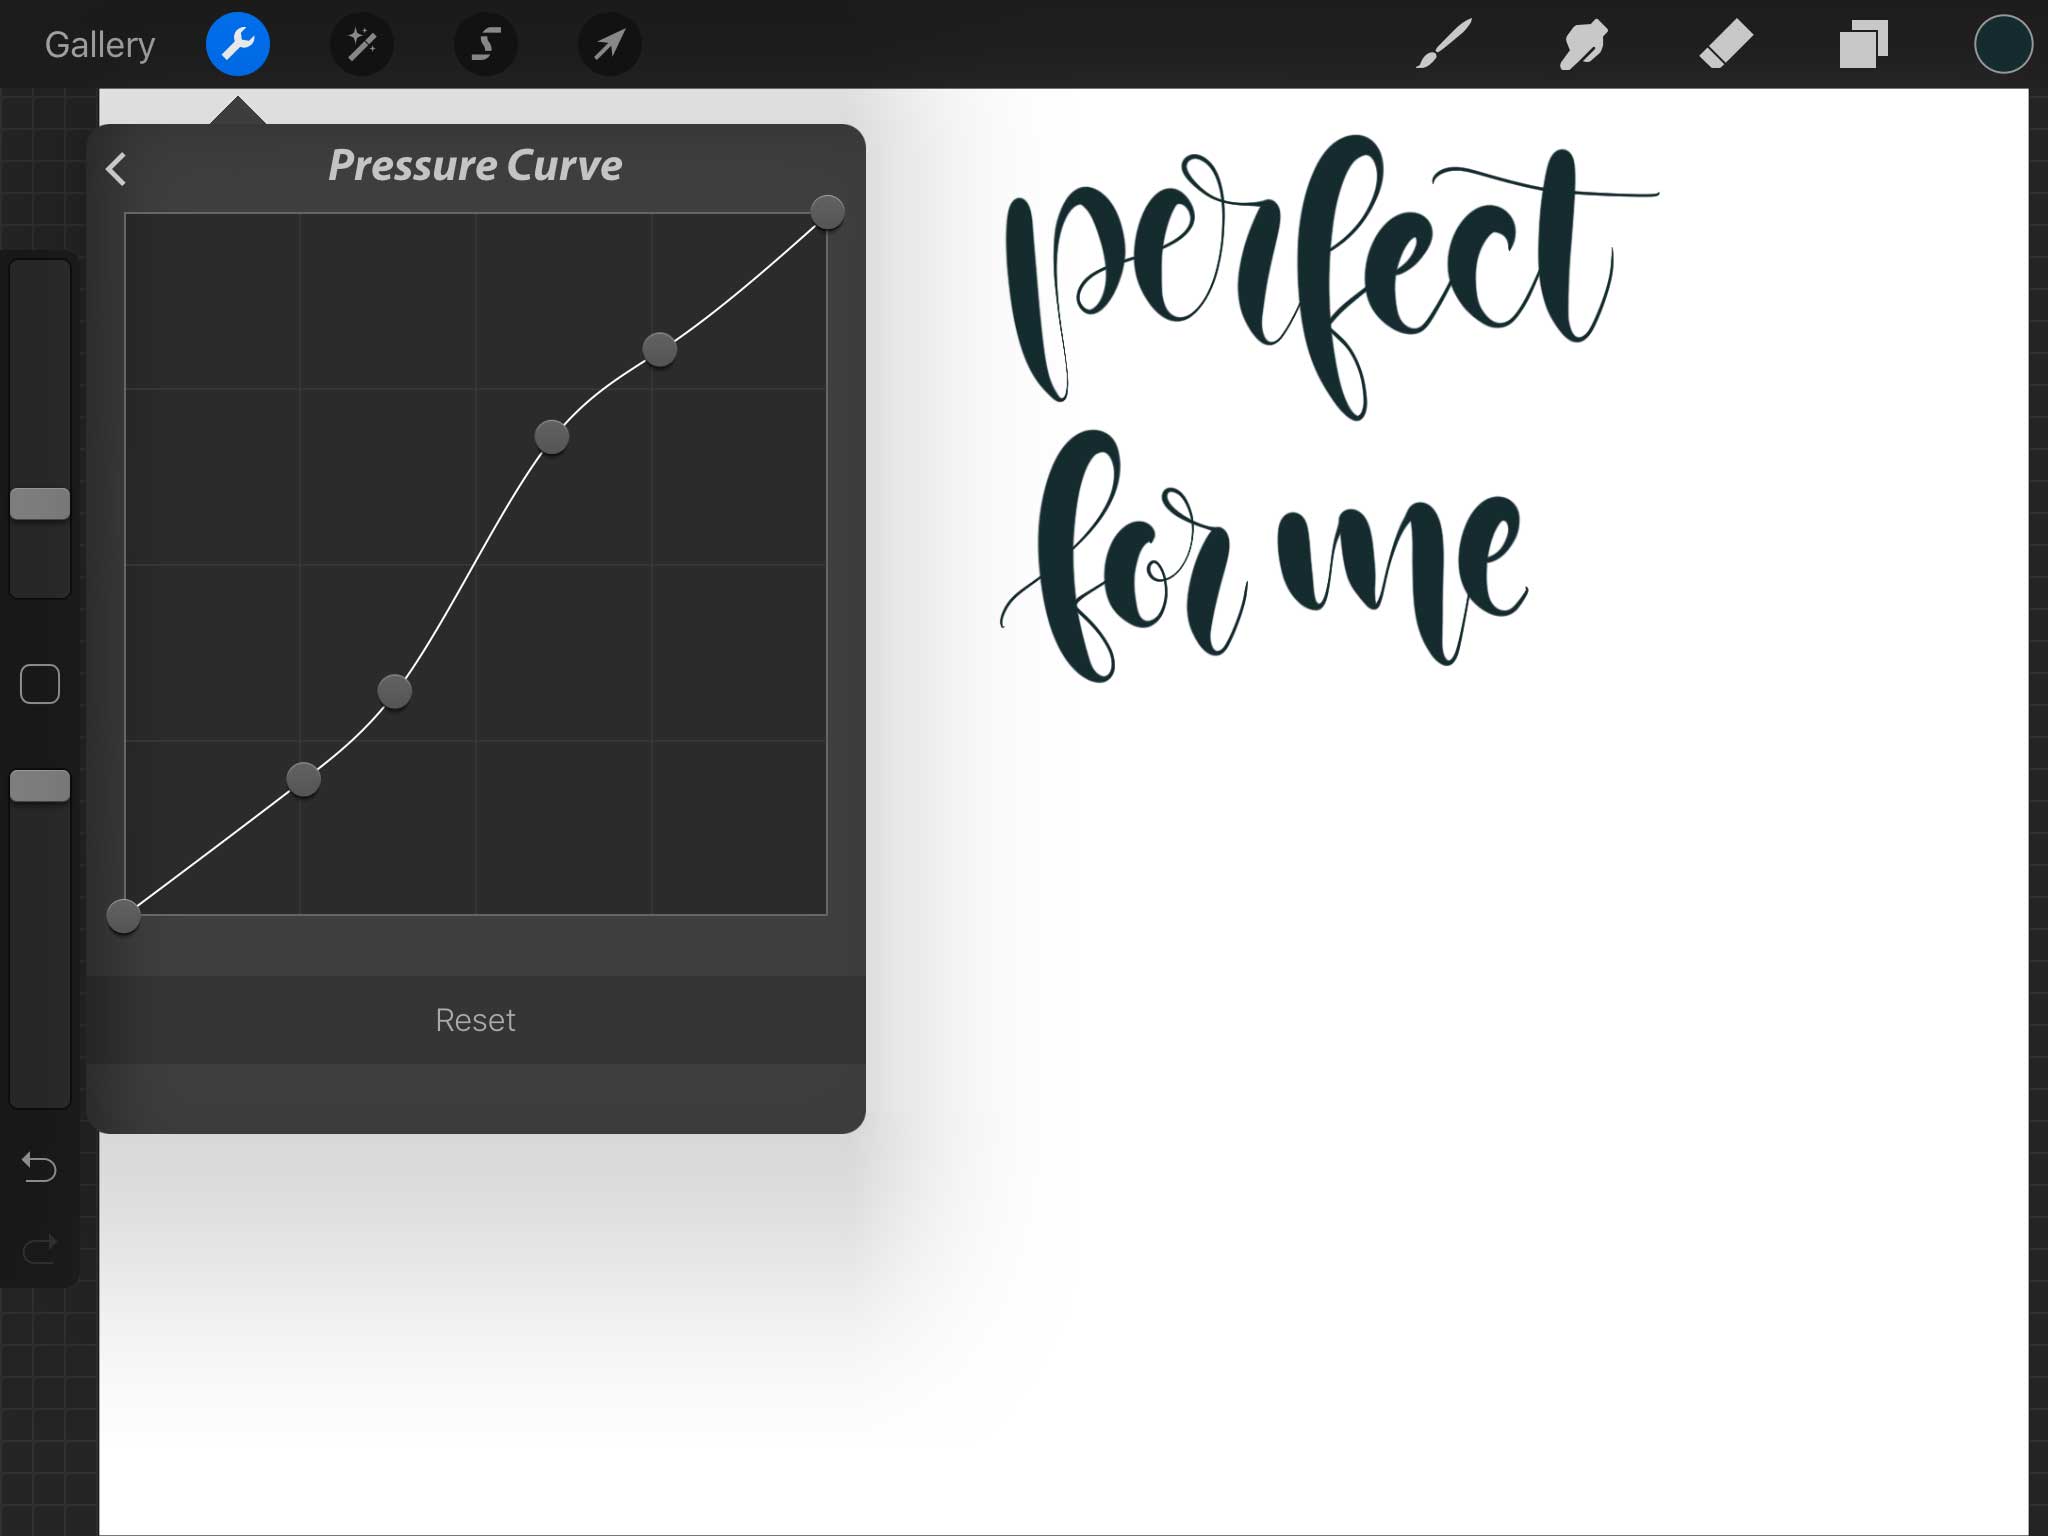 Gallery
Pressure Curve
Reset
perfect
for me